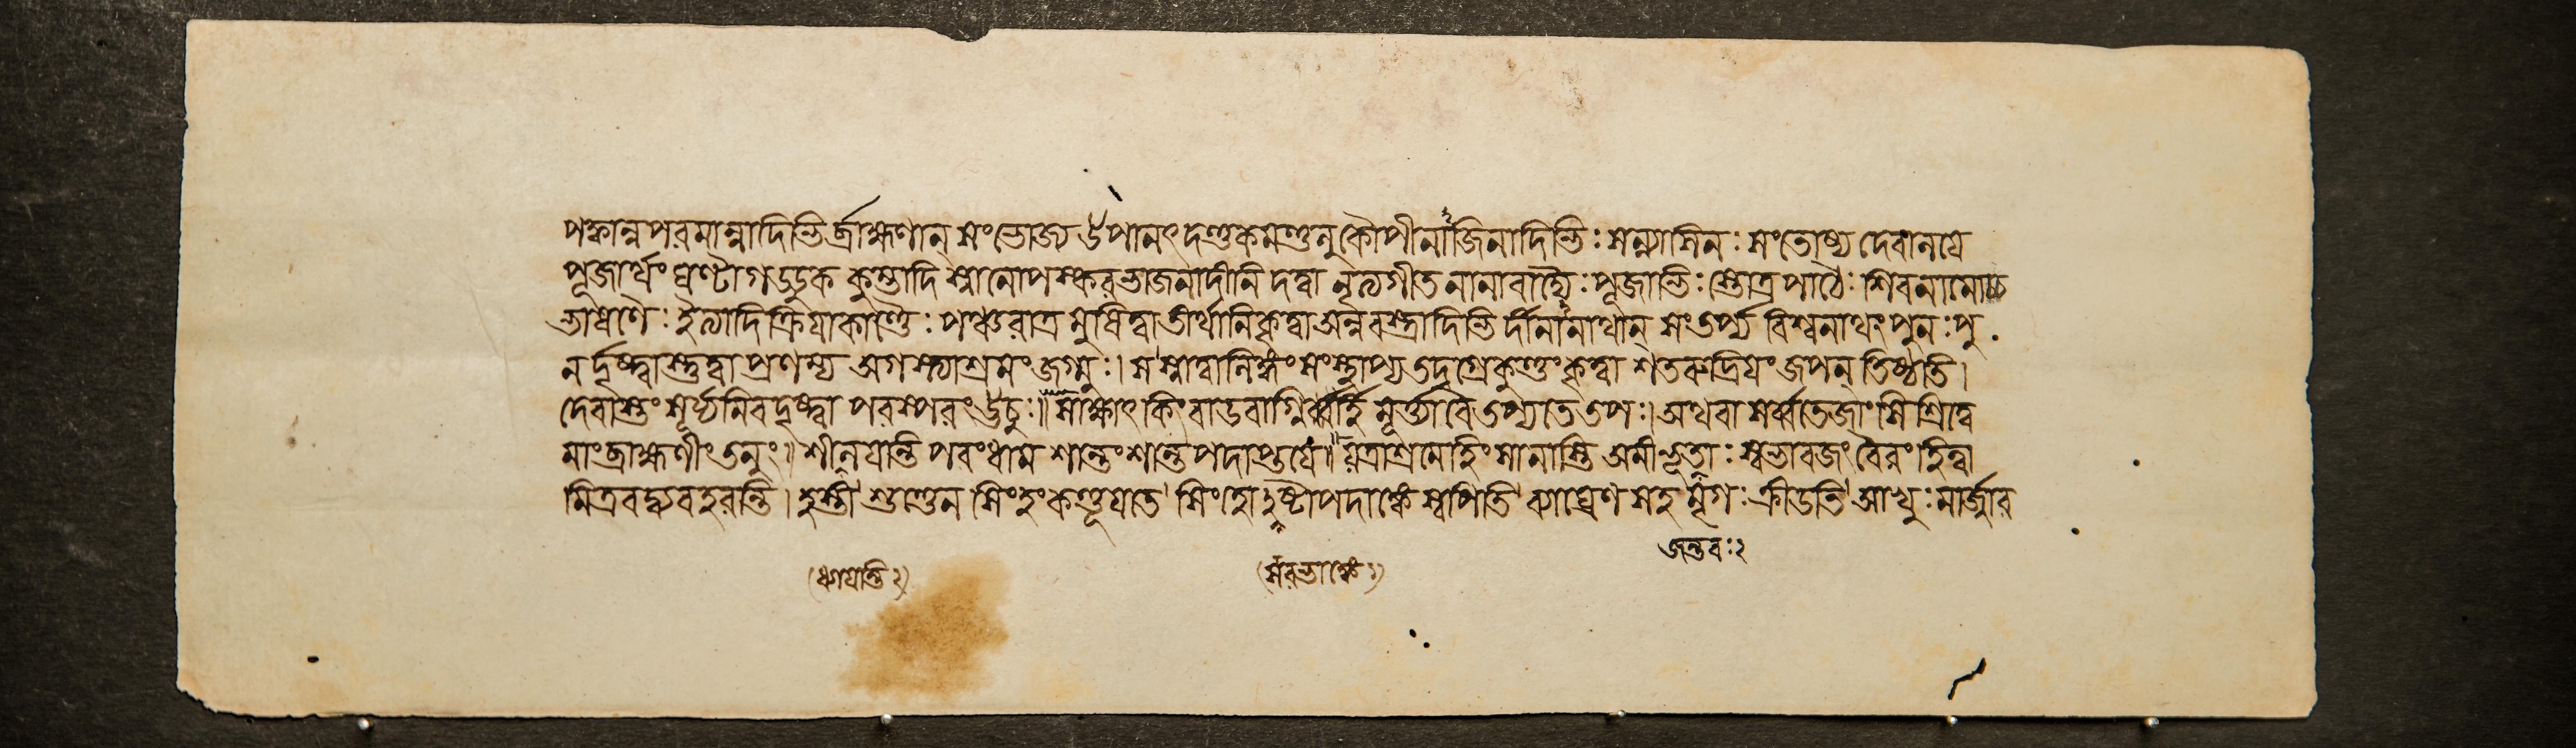 পক্বান্নপরমান্নাদিভির্ব্রাহ্মণান্ সংভোজ্য উপানৎ দণ্ডকমণ্ডলুকৌপীনাজিনাদিভিঃ সন্ন্যাসিনঃ সংতোষ্য দেবালয়ে
পূজার্থং ঘণ্টাগডডুক কুম্ভাদি স্নানোপস্করভাজনাদীনি দত্বা নৃত্যগীত নানাবাদ্যৈঃ পূজাভিঃ স্তোত্রপাঠৈঃ শিবনামোচ্চ
ভাষণৈঃ ইত্যাদিক্রিয়াকাণ্ডৈঃ পঞ্চরাত্র মুষিত্বা তীর্থানিকৃত্বা অন্নবস্ত্রাদিভি র্দীনানাথান্ সংতর্প্য বিশ্বনাথং পুনঃপু
নর্দৃষ্ট্বাস্তুত্বা প্রণম্য অগস্ত্যাশ্রমং জগ্মুঃ। স স্নাত্বালিঙ্গং সংস্থাপ্য তদগ্রেকুণ্ডংকৃত্বা শতরুদ্রিয়ং জপন্ তিষ্ঠতি।
দেবাস্তং সূর্য্যমিবদৃষ্ট্বা পরস্পরং ঊচুঃ॥ সাক্ষাৎ কিংবাডবাগ্নির্ব্বাহি মূর্ত্যাবৈতপ্যতেতপঃ। অথবা সর্ব্বতেজাংসি শ্রিত্বে
মাংব্রাহ্মণীংতনুং॥ শীলয়ন্তি পরংধাম শান্তংশান্তপদাপ্তয়ে॥ যত্রাশ্রমেহিংসানাস্তি অমীভূতাঃ স্বভাবজংবৈরংহিত্বা
মিত্রবদ্ব্যবহরন্তি। হস্তী শুণ্ডেন সিংহংকণ্ডূয়তে সিংহোঽষ্টাপদাঙ্কে স্বপিতি ব্যাঘ্রেণ সহ মৃগঃ ক্রীডতি আখুঃ মার্জ্জার
জন্তবঃ২
(ধ্যায়ন্তি২) (সরভাঙ্কে১)